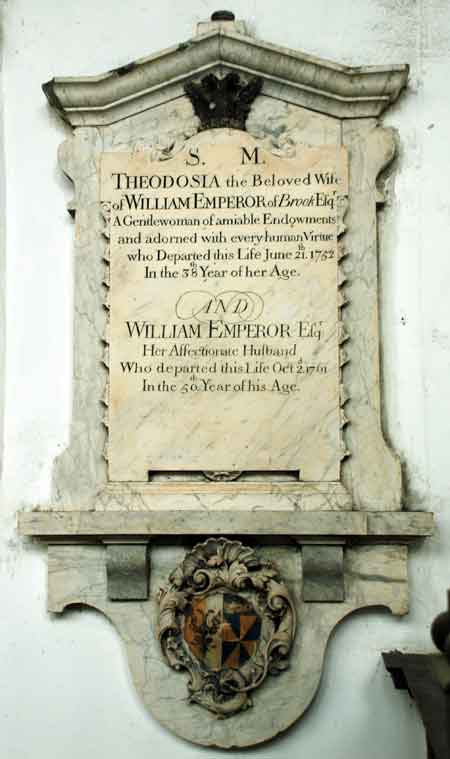 S. M.
THEODOSIA the Beloved Wife
of WILLIAM EMPEROR of Brook Esqr.
A Gentlewoman of amiable Endowments
and adorned with every human Virtue
who Departed this Life June 21.th 1752
In the 38th Year of her Age.
AND
WILLIAM EMPEROR Esqr.
Her Affectionate Husband
Who departed this Life Oct 2.d 1761
In the 50th Year of his Age.